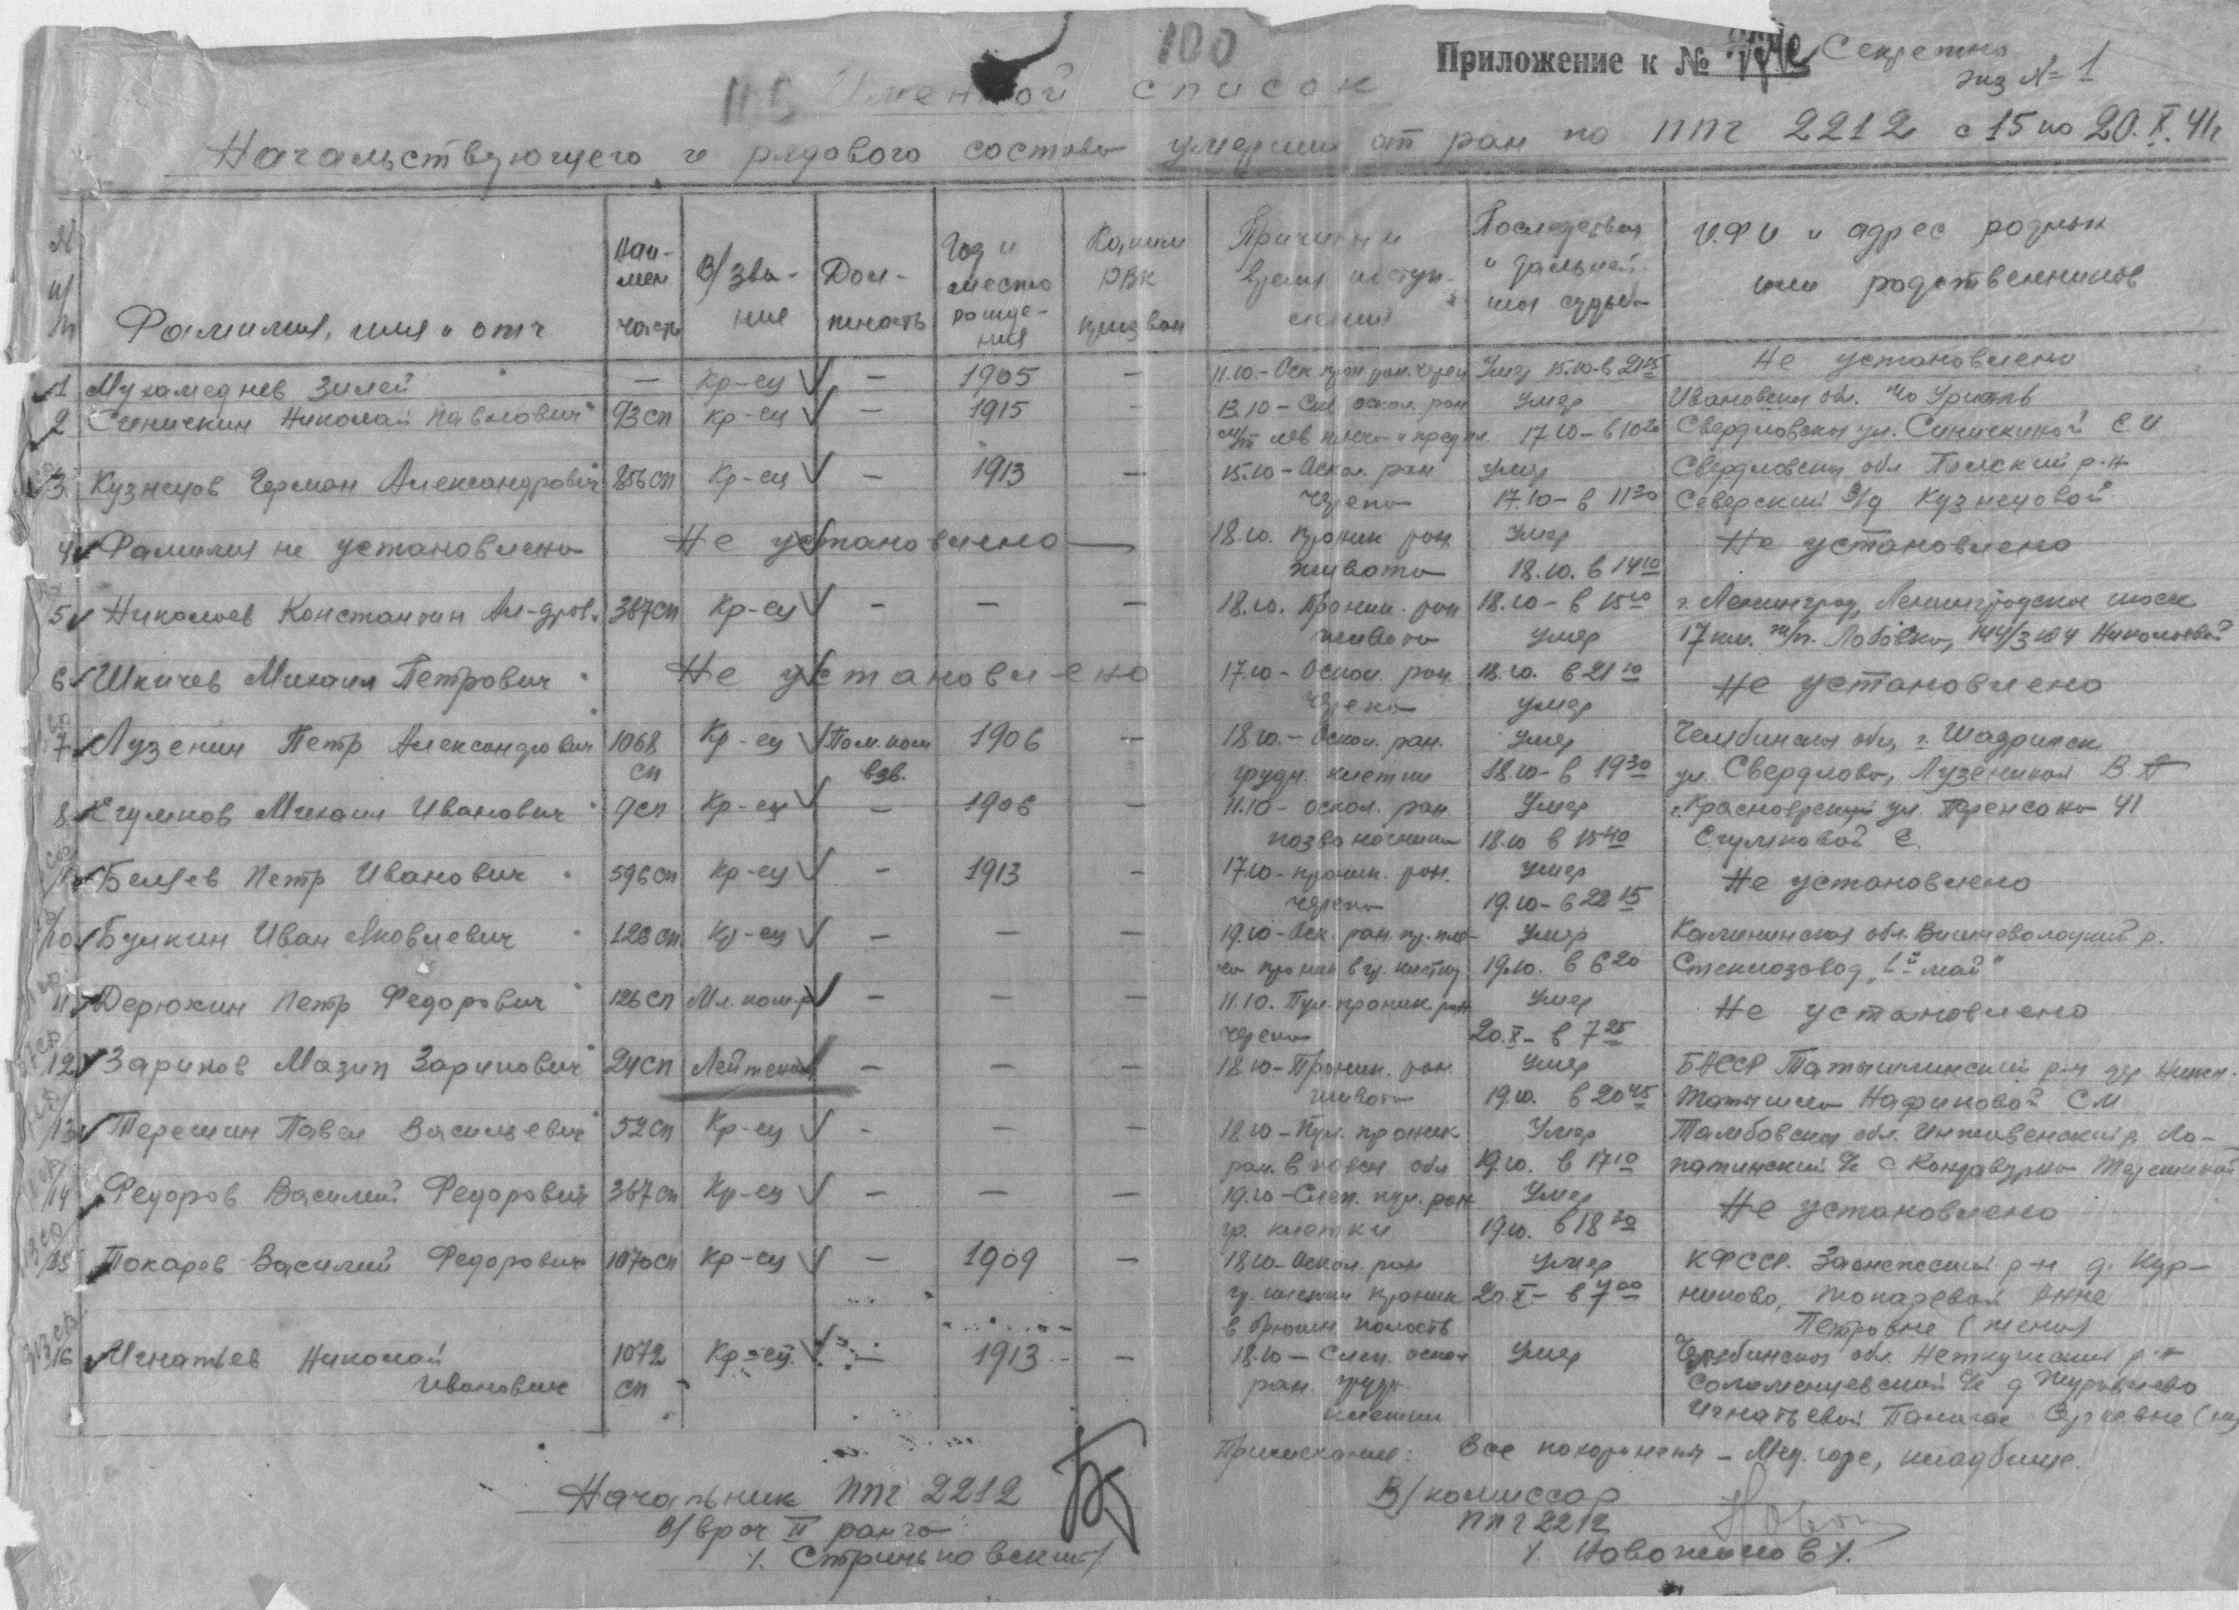 100
Приложение к №
Секретно
экз № 1
Именной список
Начальствующего и рядового состава умерших от ран по ППГ 2212 с 15 по 20.X.41г
№ п/п
Фамилия, имя и отч
Наи-
мен
части
В/зва-
ние
Дол-
жность
Год и
место
рожде-
ния
Каким
РВК
призван
Причины и
время поступ-
ления
Последствия
и дальней-
шая судьба
И.Ф.И и адрес родных
или родственников
1 Мухамеднев Зилей — Кр-ец — 1905 — 11.10 - Оск. ран. череп Умер 15.10 в 21 45 Не установлено
2 Синичкин Николай Павлович 93 СП Кр-ец — 1915 — 13.10 - оскол. ран Умер Ивановская обл.
лев плеча и 17.10 - в 10 20 Свердловская ул. Синичкиной Е И
3 Кузнецов Герман Александрович 856 СП Кр-ец — 1913 — 15.10 - Оскол. ран Умер Свердловская обл р-н
черепа 17.10 - в 11 30 Северский з/д Кузнецовой
4 Фамилия не установлена Не установлено — 18.10. Проник ран Умер Не установлено
живота 18.10. в 14 10
5 Николаев Константин Ал-дров. 367 СП Кр-ец — — — 18.10. Проник. ран 18.10 - в 15 10 г. Ленинград, Ленинградское шоссе
живота умер 17 км. Николаевой
6 Шкичев Михаил Петрович Не установлено 17.10 - Оскол. ран 18.10. в 21 10 Не установлено
черепа умер
7 Лузенин Петр Александрович 1068 Кр-ец Пом. ком 1906 — 18.10. - Оскол. ран. умер Челябинская обл, г. Шадринск
СП взв. грудн. клетки 18.10 - в 19 30 ул. Свердлова, Лузениной В А
8 Егумнов Михаил Иванович 9 СП Кр-ец — 1906 — 11.10 - оскол. ран Умер г. Красноярский ул. Перенсона 41
позвоночника 18.10 в 15 40 Егумновой Е.
9 Беляев Петр Иванович 596 СП Кр-ец — 1913 — 17.10 - проник. ран. Умер Не установлено
черепа 19.10 - в 22 15
10 Булкин Иван Яковлевич 126 СП Кр-ец — — — 19.10 - Оск. ран. пр. пле- Умер Калининская обл. Вышневолоцкий р.
ча проник в гр. клетку 19.10. в 6 20 Стеклозавод „1й май“
11 Дерюжин Петр Федорович 126 СП Мл. ком-р — — — 11.10. Пул. проник. ран Умер Не установлено
черепа 20.X - в 7 25
12 Зарипов Мазип Зарипович 24 СП Лейтенант — — — 18.10 - Проник. ран Умер БАССР Татышлинский р-н дер Нижн.
живота 19.10. в 20 45 Татышла Нафиковой С М
13 Терешин Павел Васильевич 52 СП Кр-ец - — — 18.10 - Пул. проник Умер Тамбовская обл. Инжавенский р. Ло-
ран. в обл 19.10. в 17 10 патинский с/с с Терешиной
14 Федоров Василий Федорович 367 СП Кр-ец — — — 19.10 - Слеп. пул. ран Умер Не установлено
гр. клетки 19.10. в 18
15 Токарев Василий Федорович 1070 СП Кр-ец — 1909 — 18.10 - Оскол. ран умер КФССР. Заонежский р-н д. Кур-
гр. клетки проник 20.X - в 7 00 никово, Токаревой Анне
в брюшн полость Петровне (жена)
16 Игнатьев Николай 1072 Кр-ец — 1913 — 18.10 - Слеп. оскол Умер Челябинская обл. р-н
Иванович СП ран. грудн. с/с д Журавлево
клетки Игнатьевой
Примечание: Все похоронены - Мед. гора, кладбище.
Начальник ППГ 2212
В/врач II ранга
/. Стриньковский/
В/комиссар
ППГ 2212
/. Новожилов /.